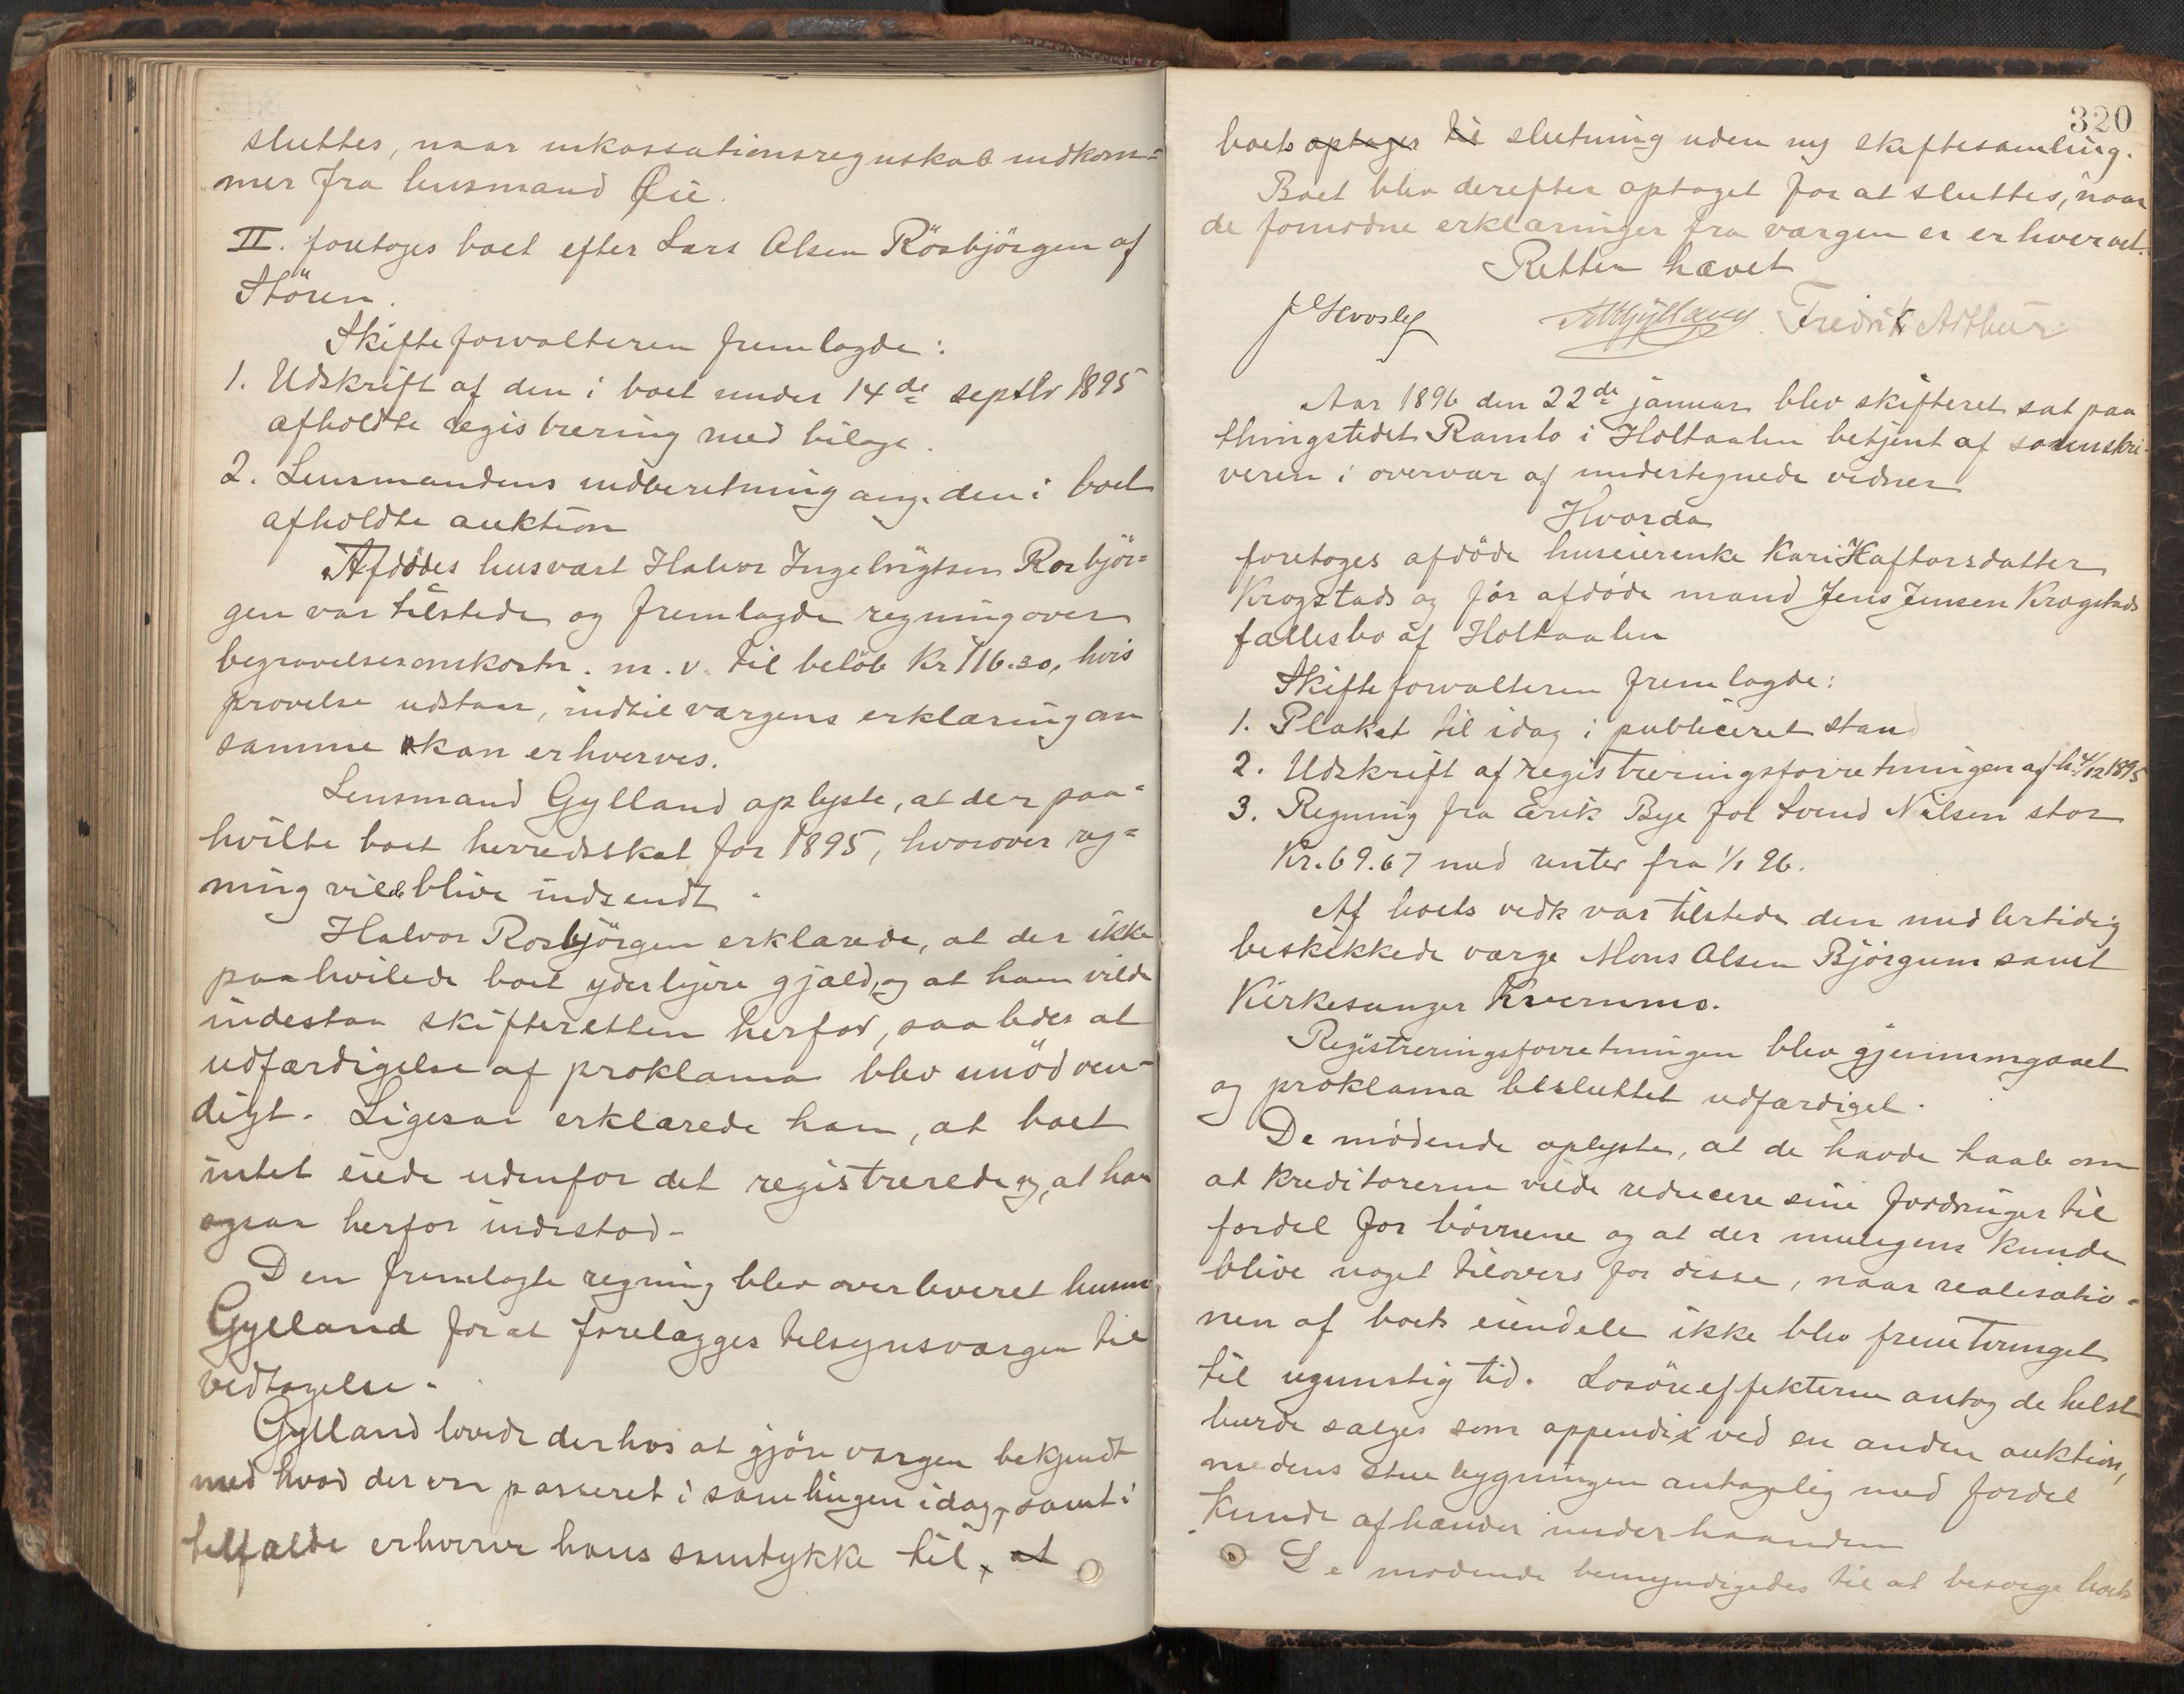 sluttes, naar inkassationsregnskab indkom=
mer fra lensmand Øie.
II. foretoges boet efter Lars Olsen Rösbjörgen af
Stören.
Skifteforvalteren fremlagde:
1. Udskrift af den i boet under 14de septbr 1895
afholdte registrering med bilage.
2. Lensmandens indberetning ang. den i boet
afholdte auktion
Afdödes husvært Halvor Ingebrigtsen Rosbjör=
gen var tilstede og fremlagde regning over
begravelsesomkostn. m. v. til belöb Kr 116.30, hvis
prövelse udstaar, indtil værgens erklæring om
samme kan erhverves.
Lensmand Gylland oplyste, at der paa=
hvilte boet herredsskat for 1895, hvorover reg=
ning vilde blive indsendt.
Halvor Rosbjörgen erklærede, at der ikke
paahvilede boet yderligere gjæld, og at han vilde
indestaa skifteretten herfor, saaledes at
udfærdigelse af proklama blev unödven=
digt. Ligesaa erklærede han, at boet
intet eiede udenfor det registrerede og, at han
ogsaa herfor indestod.
Den fremlagte regning blev overleveret lensm.
Gylland for at forelægges tilsynsværgen til
vedtagelse.
Gylland lovede derhos at gjöre værgen bekjendt
med hvad der er passeret i samlingen idag, samt i
tilfælde erhverve hans samtykke til, at
320
boets optages til slutning uden ny skiftesamling.
Boet blev derefter optaget for at sluttes, naar
de fornödne erklæringer fra værgen er erhvervet.
Retten hævet
Fredrik Arthur
Aar 1896 den 22de januar blev skifteret sat paa
thingstedet Ramlo i Holtaalen betjent af sorenskri=
veren i overvær af undertegnede vidner
Hvorda
foretoges afdöde huseierenke Kari Haftorsdatter
Krogstads og för afdöde mand Jens Jensen Krogstads
fællesbo af Holtaalen
Skifteforvalteren fremlagde:
1. Plakat til idag i publiceret stand
2. Udskrift af registreringsforretningen afh. 4/12 1895
3. Regning fra Erik Bye for Svend Nilsen stor
Kr. 69.67 med renter fra 1/1 96.
Af boets vedk var tilstede den midlertidig
beskikkede værge Mons Olsen Björgum samt
Kirkesanger Kvernmo.
Registreringsforretningen blev gjennemgaaet
og proklama besluttet udfærdiget.
De mödende oplyste, at de havde haab om
at kreditorerne vilde reducere sine fordringer til
fordel for börnene og at der muligens kunde
blive noget tilovers for disse, naar realisatio=
nen af boets eiendele ikke blev fremtvunget
til ugunstig tid. Lösöreeffekterne antog de helst
burde sælges som appendix ved en anden auktion,
medens stuebygningen antagelig med fordel
kunde afhændes underhaanden
De mödende bemyndigedes til at besörge boets